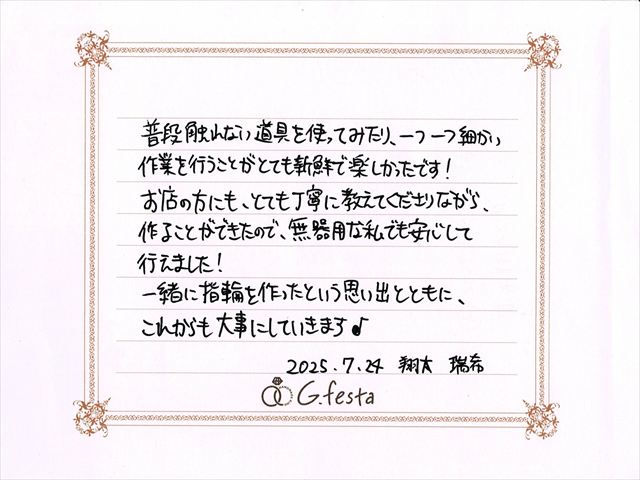 普段触れない道具を使ってみたり、一つ一つ細かい
作業を行うことがとても新鮮で楽しかったです!
お店の方にも、とても丁寧に教えてくださりながら、
作ることができたので、無器用な私でも安心して
行えました!
一緒に指輪を作ったという思い出とともに、
これからも大事にしていきます♪
2025.7.24 翔太 瑞希
G.festa